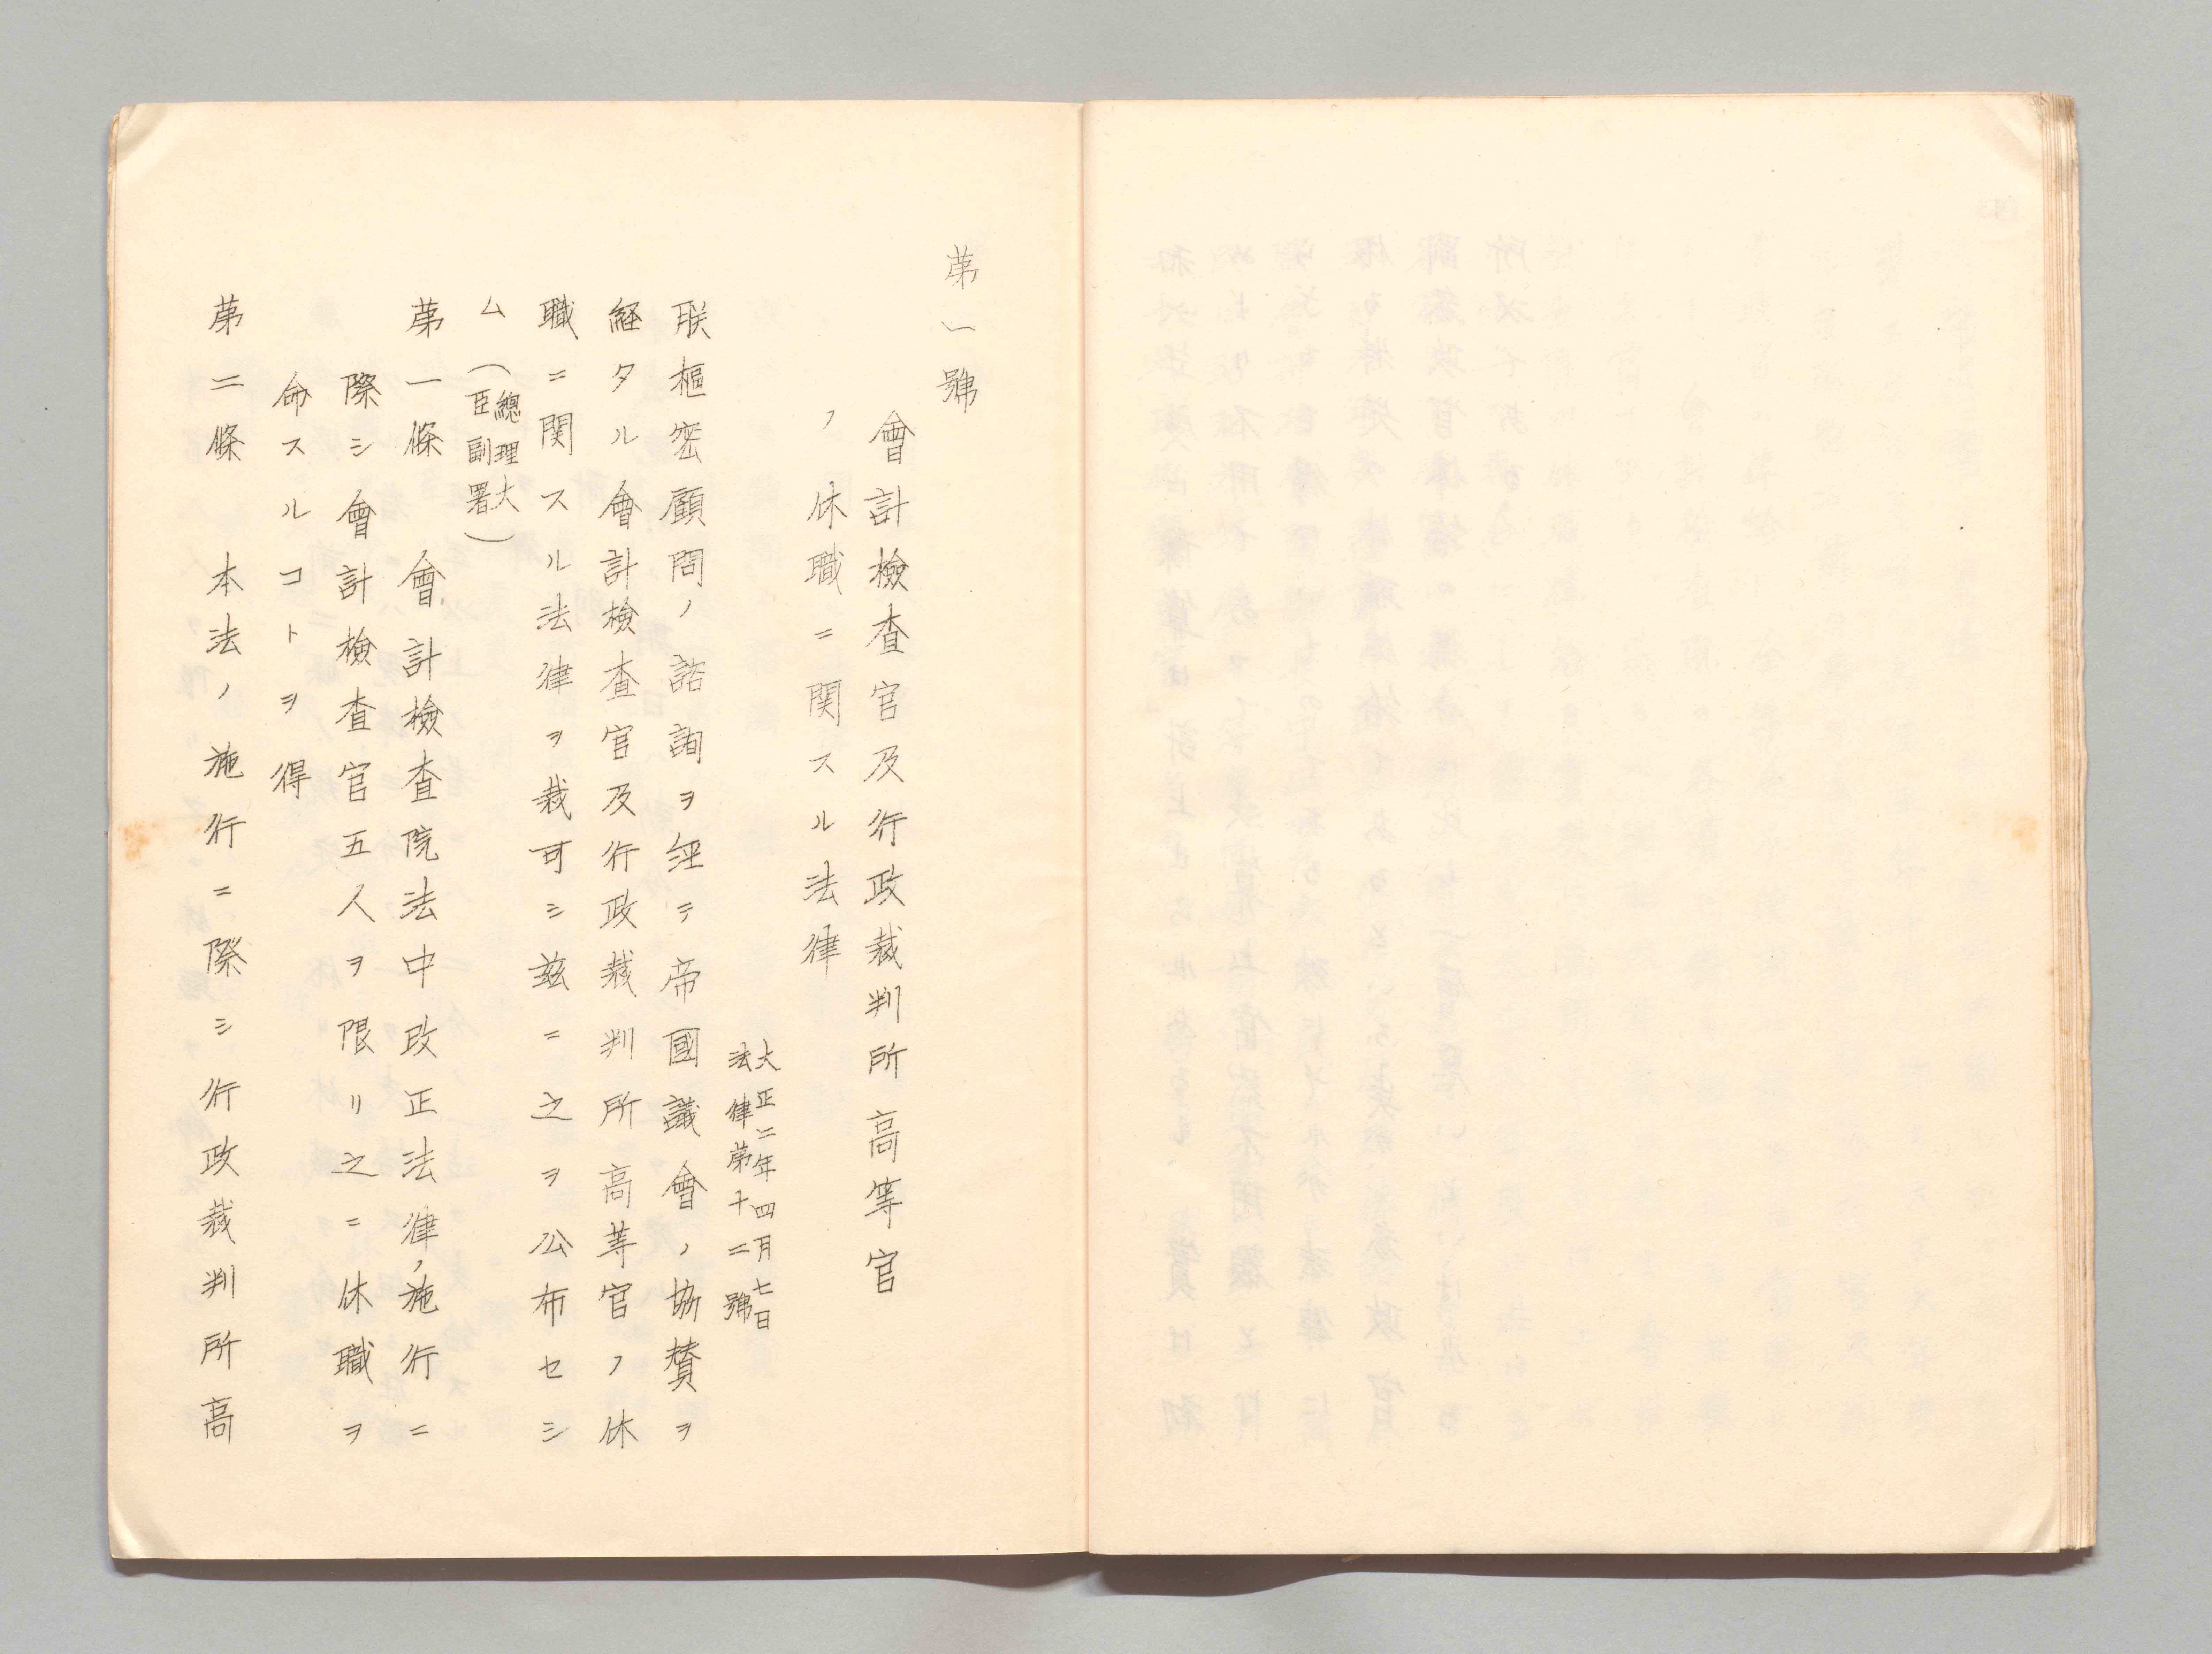 第一號
會計檢査官及行政裁判所高等官
ノ休職ニ関スル法律
大正二年四月七日
法律第十二號
朕樞密顧問ノ諮詢ヲ経テ帝國議會ノ協賛ヲ
経タル會計檢査官及行政裁判所高等官ノ休
職ニ関スル法律ヲ裁可シ玆ニ之ヲ公布セシ
ム(總理大
臣副署)
第一條 會計檢査院法中改正法律ノ施行ニ
際シ會計檢査官五人ヲ限リ之ニ休職ヲ
命スルコトヲ得
第二條 本法ノ施行ニ際シ行政裁判所高